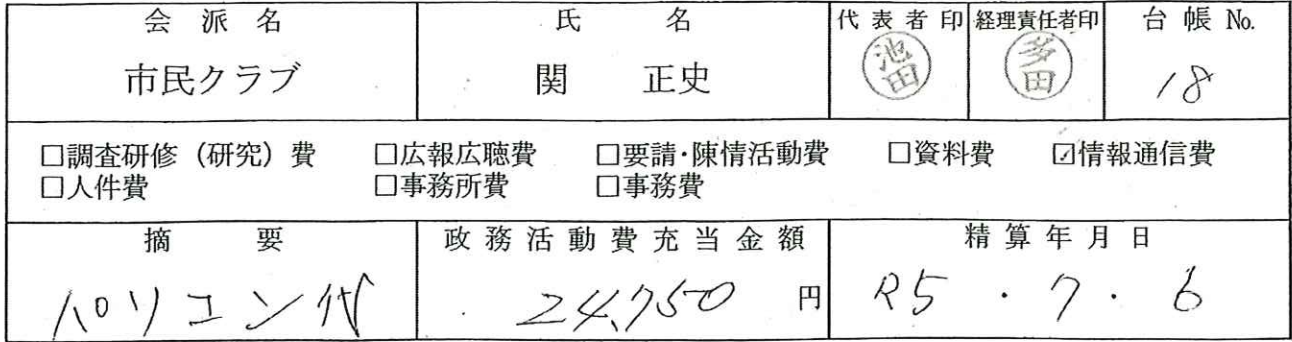 会派名 氏名 代表者印 経理責任者印 台帳No.
市民クラブ 関 正史 池田 多田 18
□調査研修(研究)費 □広報広聴費 □要請・陳情活動費 □資料費 ☑情報通信費
□人件費 □事務所費 □事務費
摘要 政務活動費充当金額 精算年月日
パソコン代 24,750 円 R5・7・6